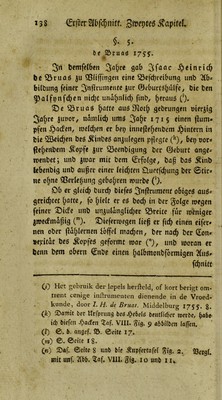 138 Erster Abschnitt. Zweytes Kapitel.
§. 5.
de Bruas 1755.
In demselben Jahre gab Isaac Heinrich
de Bruas zu Vlissingen eine Beschreibung und Ab-
bildung seiner Instrumente zur Geburtshülfe, die den
Palfynschen nicht unähnlich sind, heraus (i).
De Bruas hatte aus Noth gedrungen vierzig
Jahre zuvor, nämlich ums Jahr 1715 einen stum-
pfen Hacken, welchen er bey innestehendem Hintern in
die Weichen des Kindes anzulegen pflegte (k), bey vor-
stehendem Kopfe zur Beendigung der Geburt ange-
wendet; und zwar mit dem Erfolge, daß das Kind
lebendig und außer einer leichten Quetschung der Stir-
ne ohne Verletzung gebahren wurde (l).
Ob er gleich durch dieses Instrument obiges aus-
gerichtet hatte, so hielt er es doch in der Folge wegen
seiner Dicke und unzulänglicher Breite für weniger
zweckmäßig (m). Dieserwegen ließ er sich einen eiser-
nen oder stählernen Löffel machen, der nach der Con-
vexität des Kopfes geformt war (n), und woran er
denn dem obern Ende einen halbmondförmigen Aus-
schnitt
(i) Het gebruik der lepels hersteld, of kort berigt om-
trent eenige instrumenten dienende in de Vroed-
kunde, door I. H. de Bruas. Middelburg 1755. 8.
(k) Damit der Ursprung des Hebels deutlicher werde, habe
ich diesen Hacken Taf. VIII. Fig. 9 abbilden lassen.
(l) S. d. angef. B. Seite 17.
(m) S. Seite 18.
(n) Das. Seite 8 und die Kupfertafel Fig. 2, Vergl.
mit uns. Abb. Taf. VIII. Fig. 10 und 11.